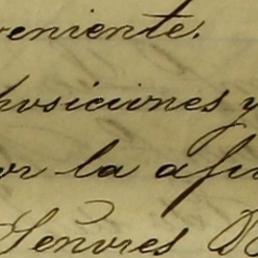 veniente.
posiciones y
or la afu
Señores D